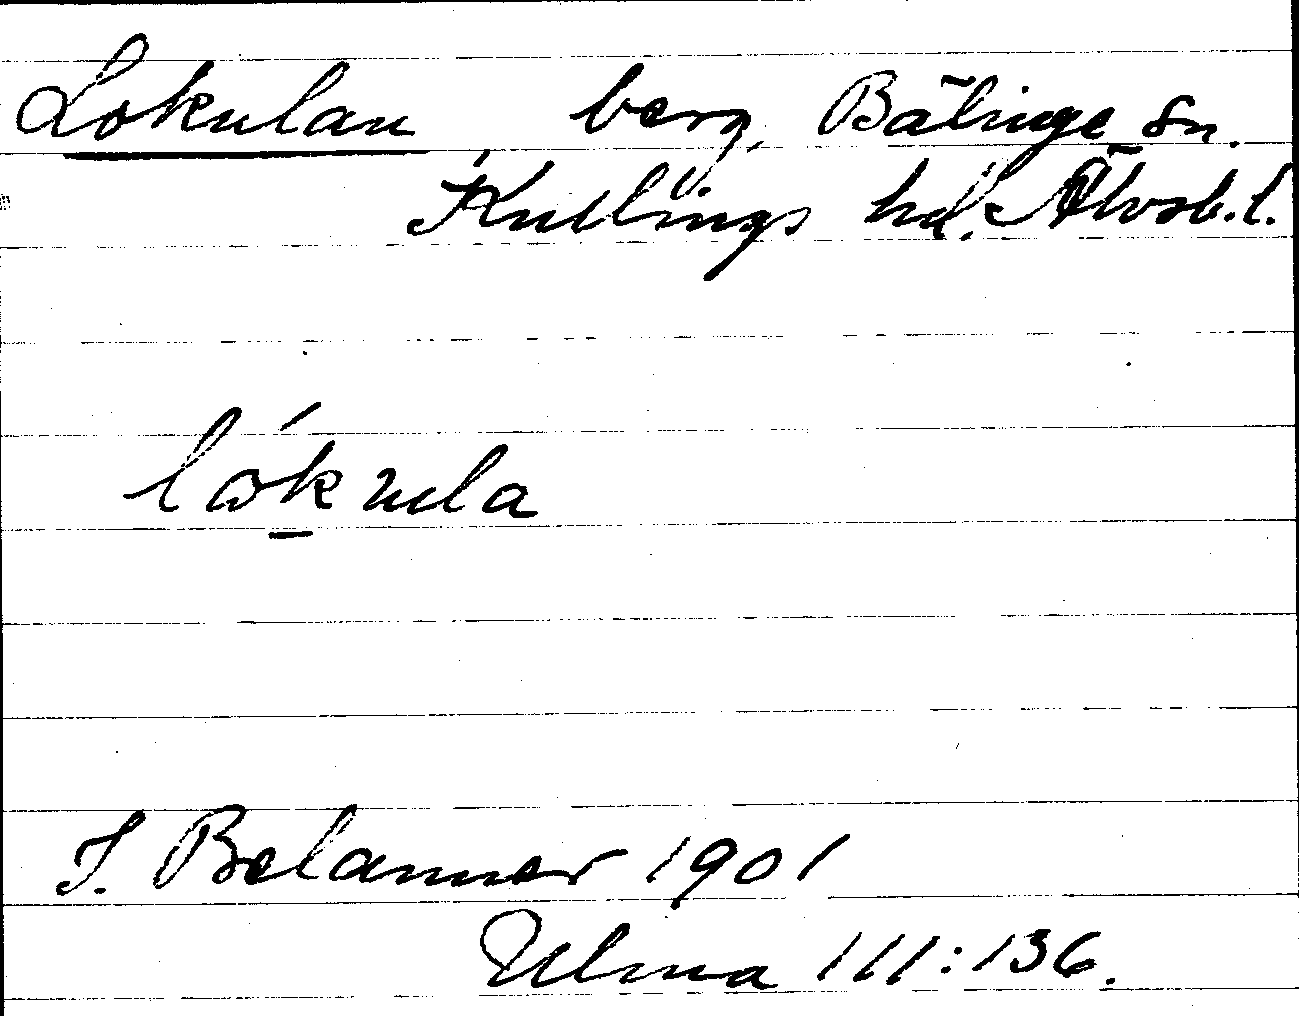 Lokulan berg, Bälinge sn.
Kullings hd. Älvsb. l.
lókula
J. Belanner 1901
Ulma 111:136.